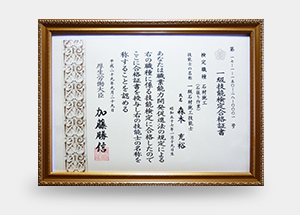 一級技能検定合格証書
検定職種 石材施工
(石張り作業)
技能士の名称
一級石材施工技能士
氏名 森木 克裕
あなたは職業能力開発促進法の規定による
右の職種に係る技能検定に合格したので
ここに合格証書を授与し右の技能士の名称を
称することを認める
厚生労働大臣
加藤勝信